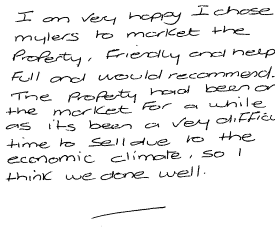 I am very happy I chose
mylers to market the
Property, Friendly and help
full and would recommend.
The Property had been on
the market for a while
as its been a very difficu
time to sell due to the
economic climate, so I
think we done well.